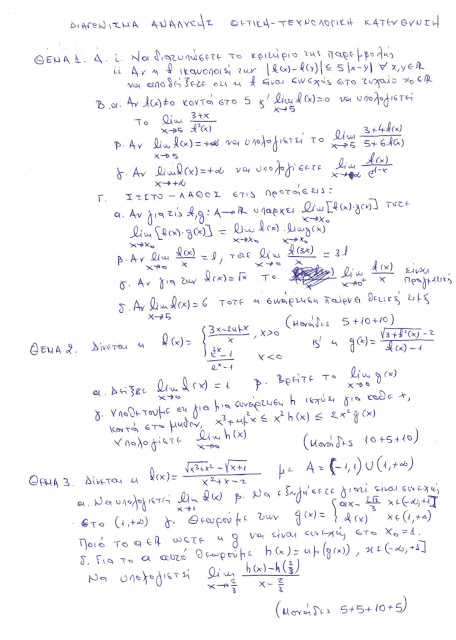 ΔΙΑΓΩΝΙΣΜΑ ΑΝΑΛΥΣΗΣ ΘΕΤΙΚΗ-ΤΕΧΝΟΛΟΓΙΚΗ ΚΑΤΕΥΘΥΝΣΗ
ΘΕΜΑ 1. Α. i. Να διατυπώσετε το κριτήριο της παρεμβολής
ii Αν η f ικανοποιεί την |f(x)-f(y)| ≤ 5|x-y| ∀ x,y∈ℝ
να αποδείξετε ότι η f είναι συνεχής στο τυχαίο x₀∈ℝ
Β. α. Αν f(x)≠0 κοντά στο 5 κ' lim x→5 f(x)=0 να υπολογιστεί
το lim x→5 (3+x)/f²(x)
β. Αν lim x→5 f(x)=+∞ να υπολογιστεί το lim x→5 (3+4f(x))/(5+6f(x))
γ. Αν lim x→+∞ f(x)=+∞ να υπολογίσετε lim f(x)/
Γ. ΣΩΣΤΟ-ΛΑΘΟΣ στις προτάσεις:
α. Αν για τις f,g: A→ℝ υπάρχει lim x→x₀ [f(x)·g(x)] τότε
lim x→x₀ [f(x)·g(x)] = lim x→x₀ f(x)·lim x→x₀ g(x)
β. Αν lim x→0 f(x)/x = l, τότε lim x→0 f(3x)/x = 3l
γ. Αν για την f(x)=√x το lim x→0⁺ f(x)/x είναι πραγματικός
δ. Αν lim x→5 f(x)=6 τότε η συνάρτηση παίρνει θετικές τιμές
(Μονάδες 5+10+10)
ΘΕΜΑ 2. Δίνεται η f(x) = { (3x-2ημx)/x, x>0 , x<0 κ' η g(x)= (√(3+f²(x))-2)/(f(x)-1)
α. Δείξε lim x→0 f(x)=1 β. Βρείτε το lim x→0 g(x)
γ. Υποθέτουμε ότι για μια συνάρτηση h ισχύει για κάθε x,
κοντά στο μηδέν, x³+ημ²x ≤ x²h(x) ≤ 2x²g(x)
Υπολογίστε lim x→0 h(x)
(Μονάδες 10+5+10)
ΘΕΜΑ 3. Δίνεται η f(x)= (√(x³+x²)-√(x+1))/(x²+x-2) με A=(-1,1)∪(1,+∞)
α. Να υπολογιστεί lim x→1 f(x) β. Να εξηγήσετε γιατί είναι συνεχής
στο (1,+∞) γ. Θεωρούμε την g(x)= { αx-2√2/3 x∈(-∞,1] f(x) x∈(1,+∞)
Ποιό το α∈ℝ ώστε η g να είναι συνεχής στο x₀=1.
δ. Για το α αυτό θεωρούμε h(x)=ημ(g(x)), x∈(-∞,1]
Να υπολογιστεί lim x→2/3 (h(x)-h(2/3))/(x-2/3)
(Μονάδες 5+5+10+5)